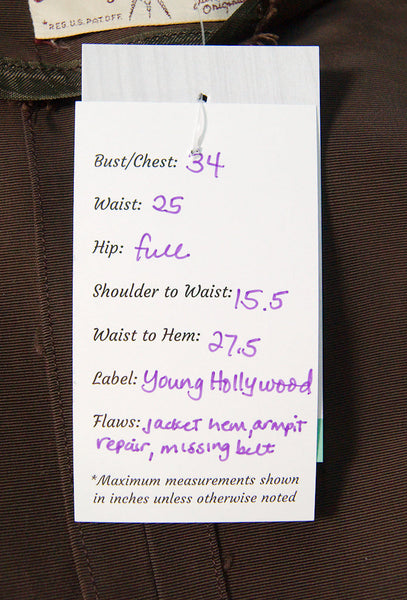 *REG. U.S. PAT. OFF.
Bust/Chest: 34
Waist: 25
Hip: full
Shoulder to Waist: 15.5
Waist to Hem: 27.5
Label: Young Hollywood
Flaws: Jacket hem, armpit
repair, missing belt
*Maximum measurements shown
in inches unless otherwise noted